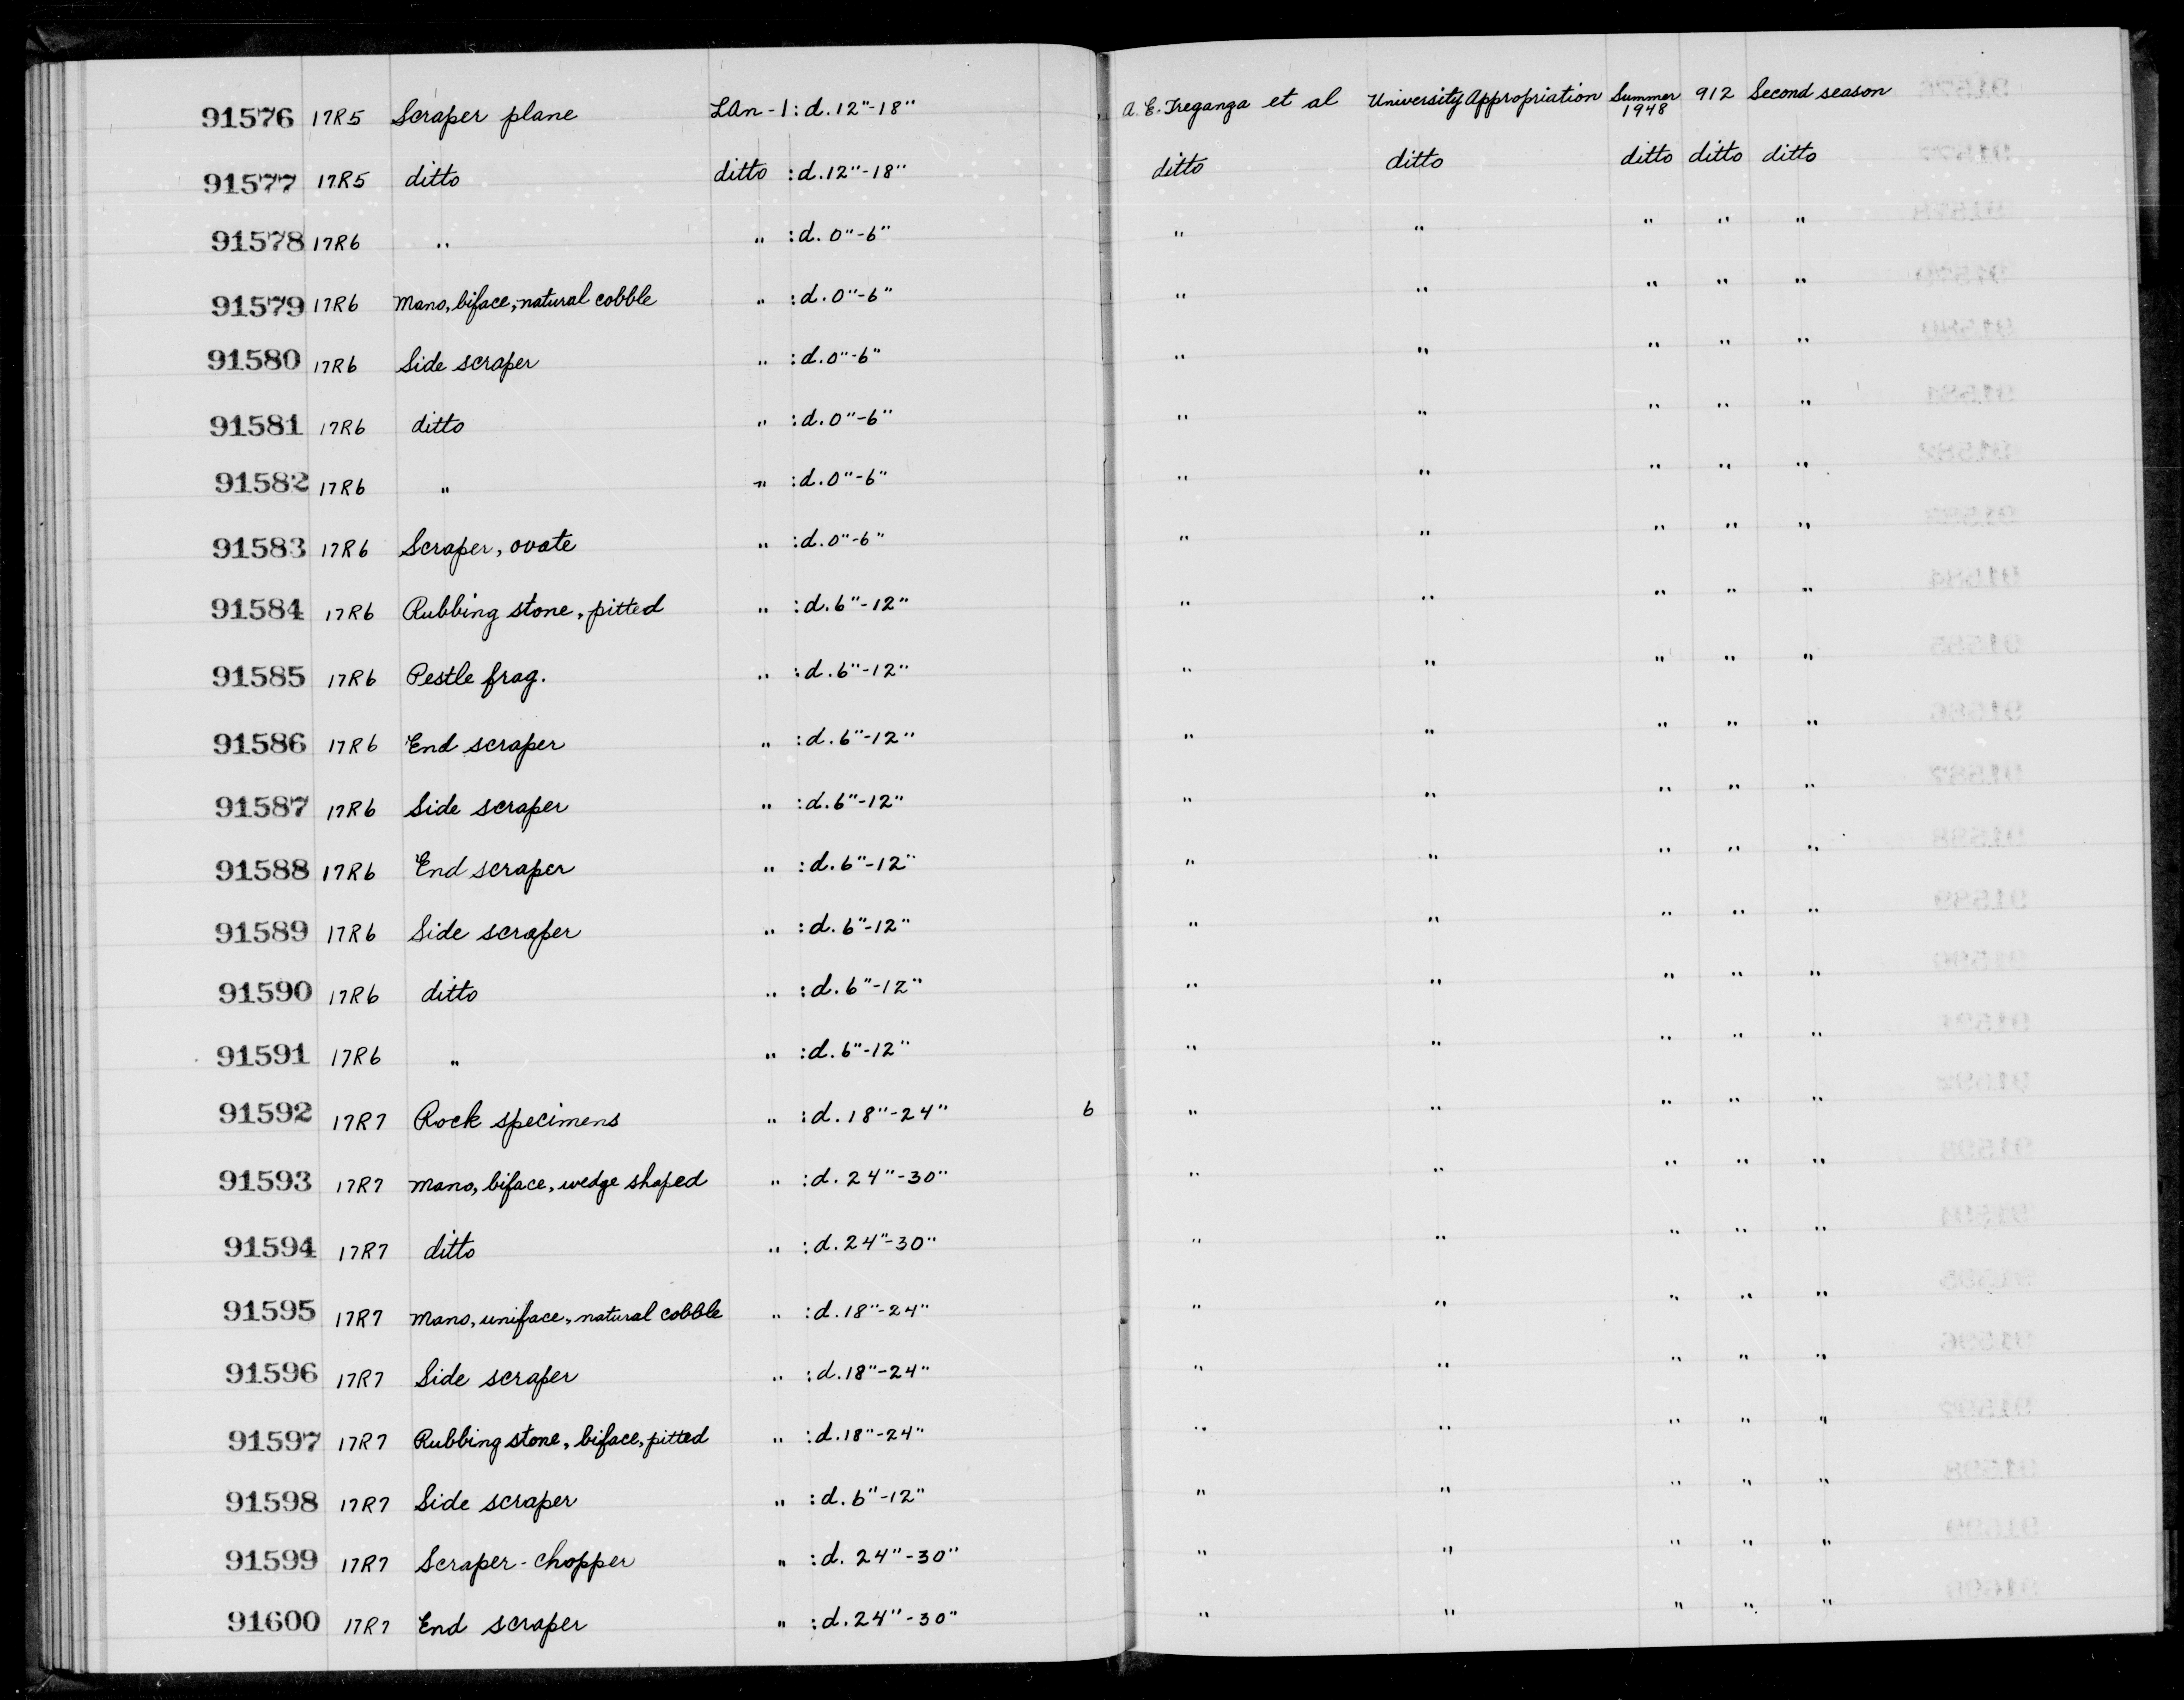 91576 17R5 Scraper plane LAn-1: d. 12"-18" A. E. Treganza et al University Appropriation Summer 1948 912 Second season
91577 17R5 ditto ditto : d. 12"-18" ditto ditto ditto ditto ditto
91578 17R6 " " : d. 0"-6" " " " " "
91579 17R6 Mano, biface, natural cobble " : d. 0"-6" " " " " "
91580 17R6 Side scraper " : d. 0"-6" " " " " "
91581 17R6 ditto " : d. 0"-6" " " " " "
91582 17R6 " " : d. 0"-6" " " " " "
91583 17R6 Scraper, ovate " : d. 0"-6" " " " " "
91584 17R6 Rubbing stone, pitted " : d. 6"-12" " " " " "
91585 17R6 Pestle frag. " : d. 6"-12" " " " " "
91586 17R6 End scraper " : d. 6"-12" " " " " "
91587 17R6 Side scraper " : d. 6"-12" " " " " "
91588 17R6 End scraper " : d. 6"-12" " " " " "
91589 17R6 Side scraper " : d. 6"-12" " " " " "
91590 17R6 ditto " : d. 6"-12" " " " " "
91591 17R6 " " : d. 6"-12" " " " " "
91592 17R7 Rock specimens " : d. 18"-24" 6 " " " " "
91593 17R7 Mano, biface, wedge shaped " : d. 24"-30" " " " " "
91594 17R7 ditto " : d. 24"-30" " " " " "
91595 17R7 Mano, uniface, natural cobble " : d. 18"-24" " " " " "
91596 17R7 Side scraper " : d. 18"-24" " " " " "
91597 17R7 Rubbing stone, biface, pitted " : d. 18"-24" " " " " "
91598 17R7 Side scraper " : d. 6"-12" " " " " "
91599 17R7 Scraper-chopper " : d. 24"-30" " " " " "
91600 17R7 End scraper " : d. 24"-30" " " " " "